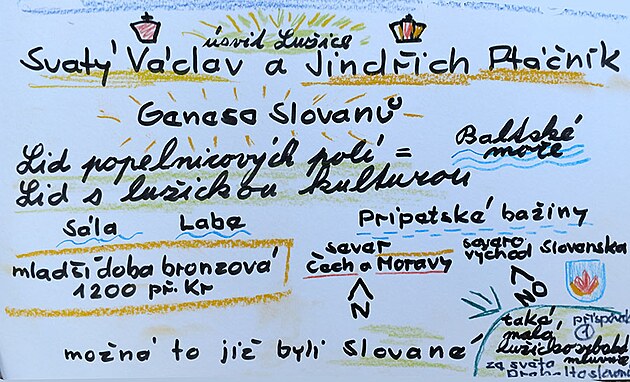 úsvit Lužice
Svatý Václav a Jindřich Ptáčník
Genese Slovanů
Lid popelnicových polí =
Lid s lužickou kulturou
Baltské
moře
Sála Labe
Pripetské bažiny
mladší doba bronzová
1200 př. Kr
sever
Čech a Moravy
N
severo
východ Slovanska
NO
možná to již byli Slované
taká
malá
lužickosrbská
příspěv
1
mluvnice
za svato